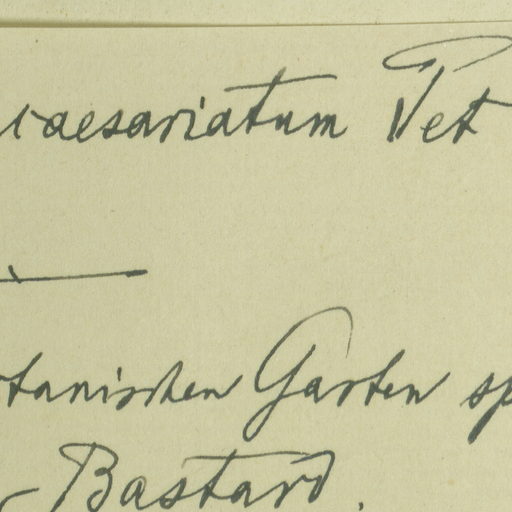 caesariatum Pet
tanischen Garten sp
Bastard.